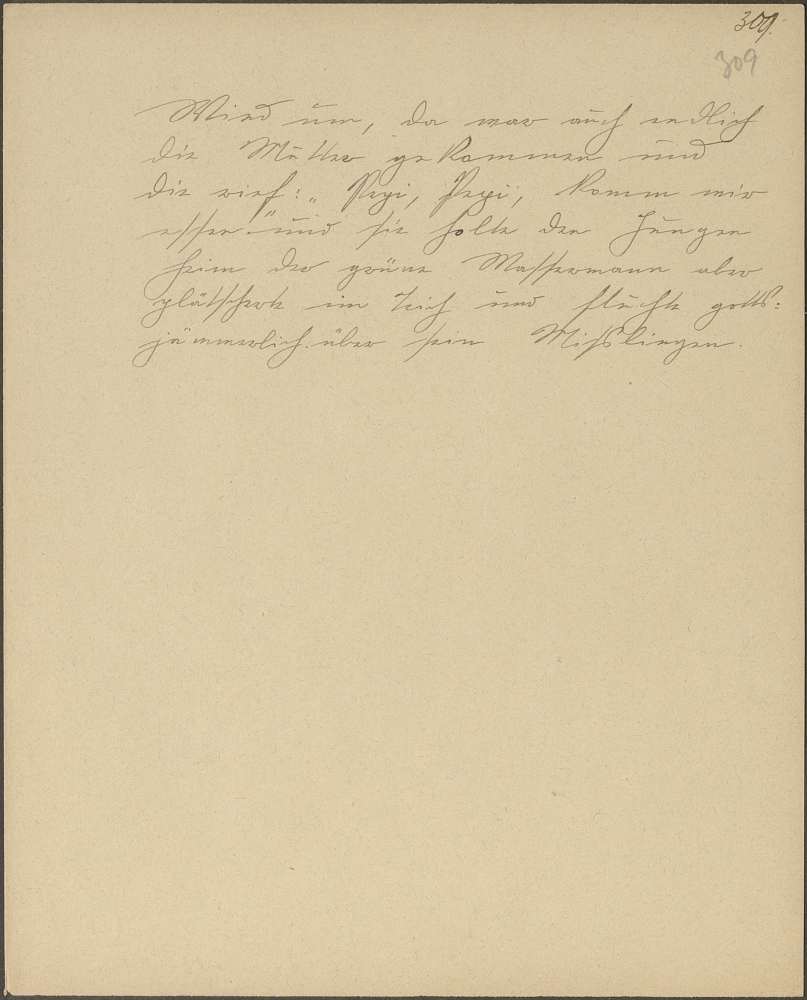 309.
309
Wind um, da war auch endlich
die Mutter gekommen und
die rief: „Pepi, Pepi, komm mir
essen" und sie holte den Jungen
heim der grüne Wassermann aber
plätscherte im Teich und fluchte gotts=
jämmerlich über sein Misslingen.